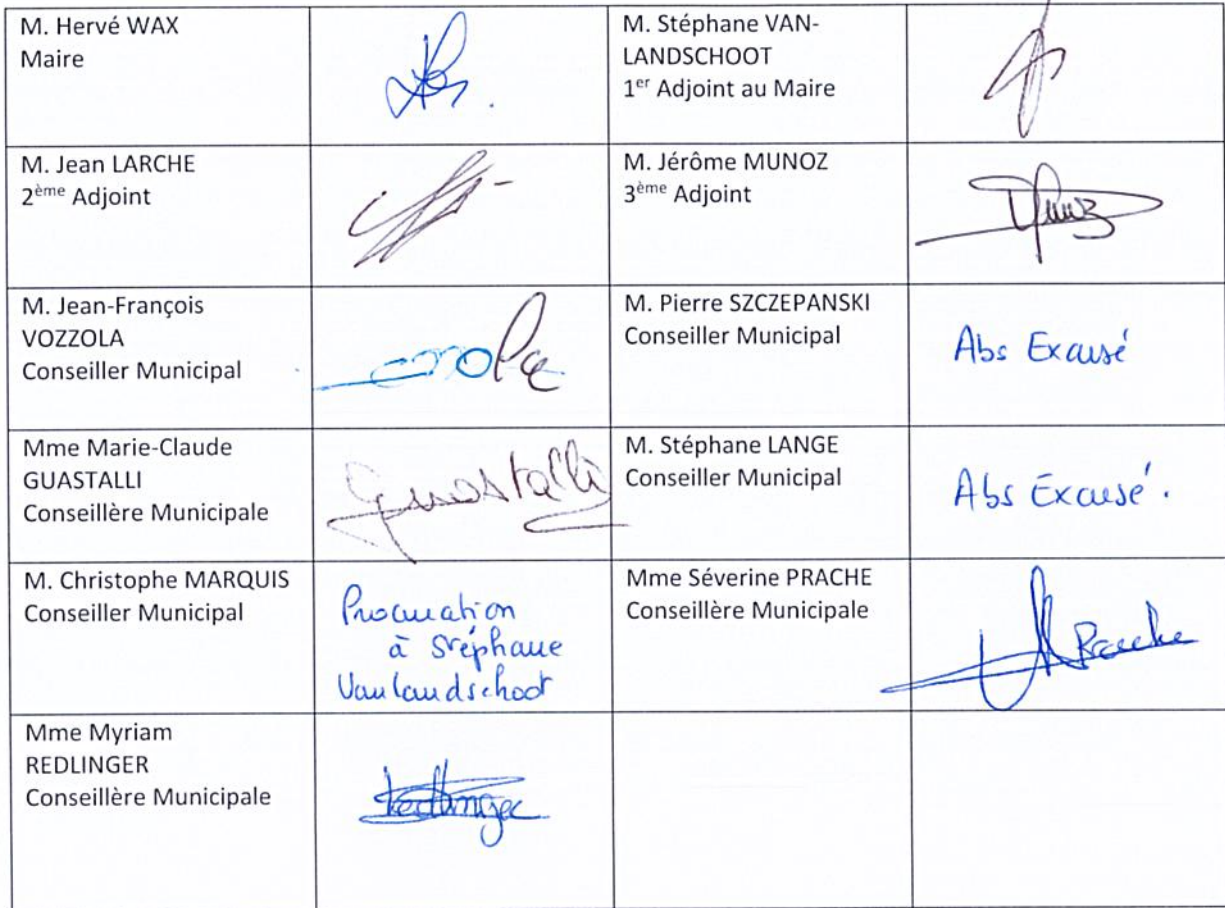 M. Hervé WAX
Maire
M. Stéphane VAN-
LANDSCHOOT
1er Adjoint au Maire
M. Jean LARCHE
2ème Adjoint
M. Jérôme MUNOZ
3ème Adjoint
M. Jean-François
VOZZOLA
Conseiller Municipal
M. Pierre SZCZEPANSKI
Conseiller Municipal
Abs Excusé
Mme Marie-Claude
GUASTALLI
Conseillère Municipale
Guastalli
M. Stéphane LANGE
Conseiller Municipal
Abs Excusé.
M. Christophe MARQUIS
Conseiller Municipal
Procuration
à Stéphane
Vanlandschoot
Mme Séverine PRACHE
Conseillère Municipale
Prache
Mme Myriam
REDLINGER
Conseillère Municipale
Redlinger